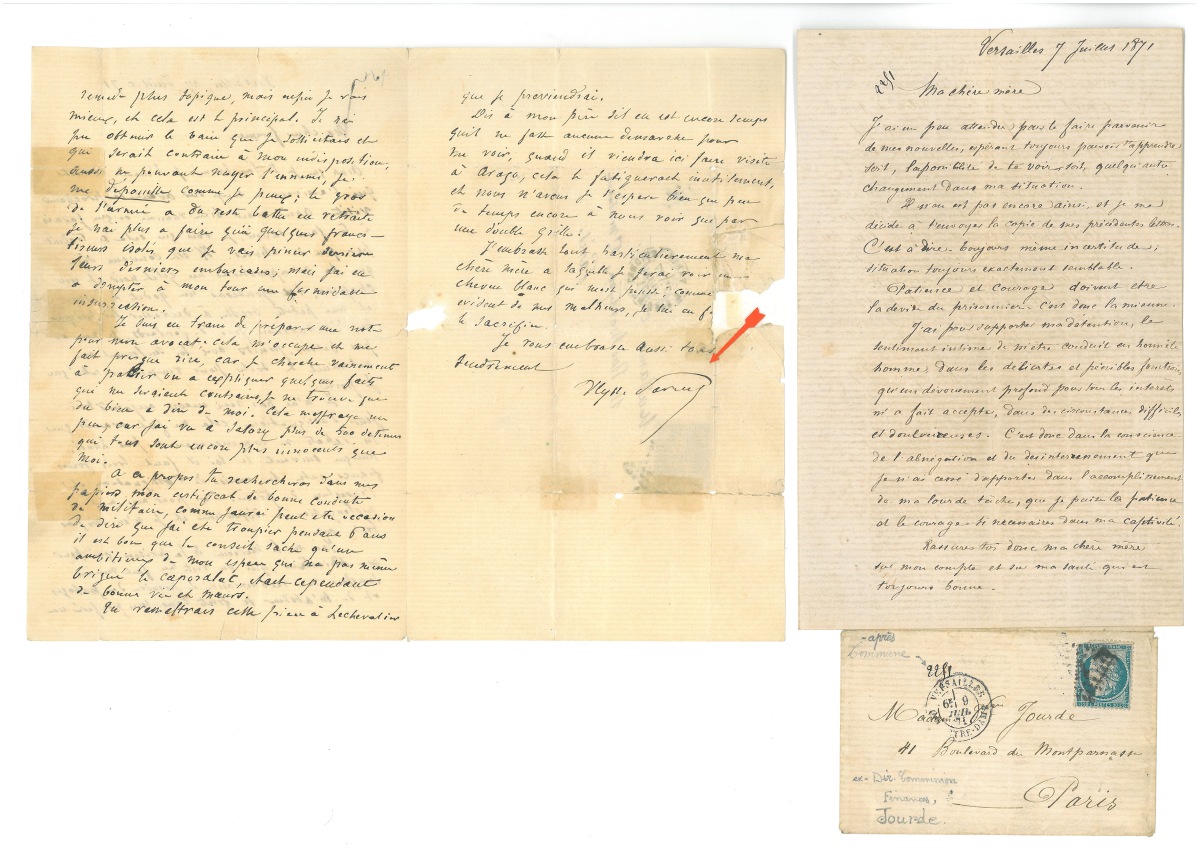 remède plus topique, mais enfin je vais
mieux, et cela est le principal. Je n'ai
pu obtenir le bain que je sollicitais et
qui serait contraire à mon indisposition,
aussi ne pouvant noyer l'ennemi, je
me dépouille comme je peux; le gros
de l'armée a du reste battu en retraite
je n'ai plus à faire qu'à quelques francs-
tireurs isolés que je vais pincer derrière
leurs derniers embuscades; mais j'ai eu
à dompter à mon tour une formidable
insurrection.
Je suis en train de préparer une note
pour mon avocat. Cela m'occupe et me
fait presque rire, car je cherche vainement
à pallier ou a expliquer quelques faits
qui me seraient contraires, je ne trouve que
du bien à dire de moi. Cela m'effraye un
peu car j'ai vu à Satory plus de 500 détenus
qui tous sont encore plus innocents que
moi.
A ce propos tu rechercheras dans mes
papiers mon certificat de bonne conduite
de militaire, comme j'aurai peut être occasion
de dire que j'ai été troupier pendant 6 ans
il est bon que le conseil sache qu'un
ambitieux de mon espèce qui n'a pas même
brigué le caporalat, était cependant
de bonne vie et mœurs.
Tu remettrais cette pièce à Lechevalier
que je préviendrai.
Dis à mon père s'il en est encore temps
qu'il ne fasse aucune démarche pour
me voir, quand il viendra ici faire visite
à Arago, cela le fatiguerait inutilement,
et nous n'avons je l'espère bien que peu
de temps encore à nous voir que par
une double grille.
J'embrasse tout particulièrement ma
chère mère à laquelle je ferai voir un
cheveu blanc qui m'est poussé comme
évident de mes malheurs, je lui en f
le sacrifice.
Je vous embrasse aussi tous
tendrement
Ulysse Parent
Versailles 7 Juillet 1871
2251
Ma chère mère
J'ai un peu attendu pour te faire parvenir
de mes nouvelles, espérant toujours pouvoir t'apprendre
soit, la possibilité de te voir, soit, quelqu'autre
changement dans ma situation.
Il n'en est pas encore ainsi, et je me
décide à t'envoyer la copie de mes précédentes lettres.
C'est à dire: toujours même incertitude;
situation toujours exactement semblable.
Patience et Courage doivent être
la devise du prisonnier. C'est donc la mienne.
J'ai pour supporter ma détention, le
sentiment intime de m'être conduit en honnête
homme, dans les délicates et pénibles fonctions
qu'un dévouement profond pour tous les intérêts
m'a fait accepter, dans des circonstances difficiles
et douloureuses. C'est donc dans la conscience
de l'abnégation et du désintéressement que
je n'ai cessé d'apporter dans l'accomplissement
de ma lourde tâche, que je puise la patience
et le courage si nécessaires dans ma captivité.
Rassures-toi donc ma chère mère
sur mon compte et sur ma santé qui est
toujours bonne.
-après
Commune
2251
VERSAILLES
9
JUIL
71
Madame Jourde
41 Boulevard du Montparnasse
Paris
ex-Dir. Commission
Finances,
Jourde.